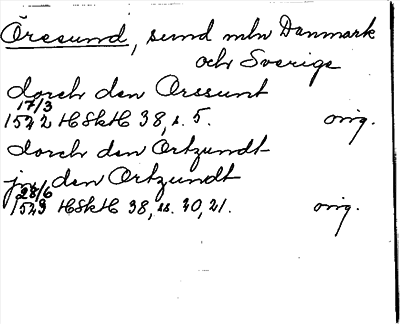 Öresund, sund mln Danmark
och Sverige
dorch den Orssunt
17/3
1542 HSkH 38, s. 5. orig.
dorch den Ortzundt
jn den Ortzundt
28/6
1543 HSkH 38, ss. 20, 21. orig.